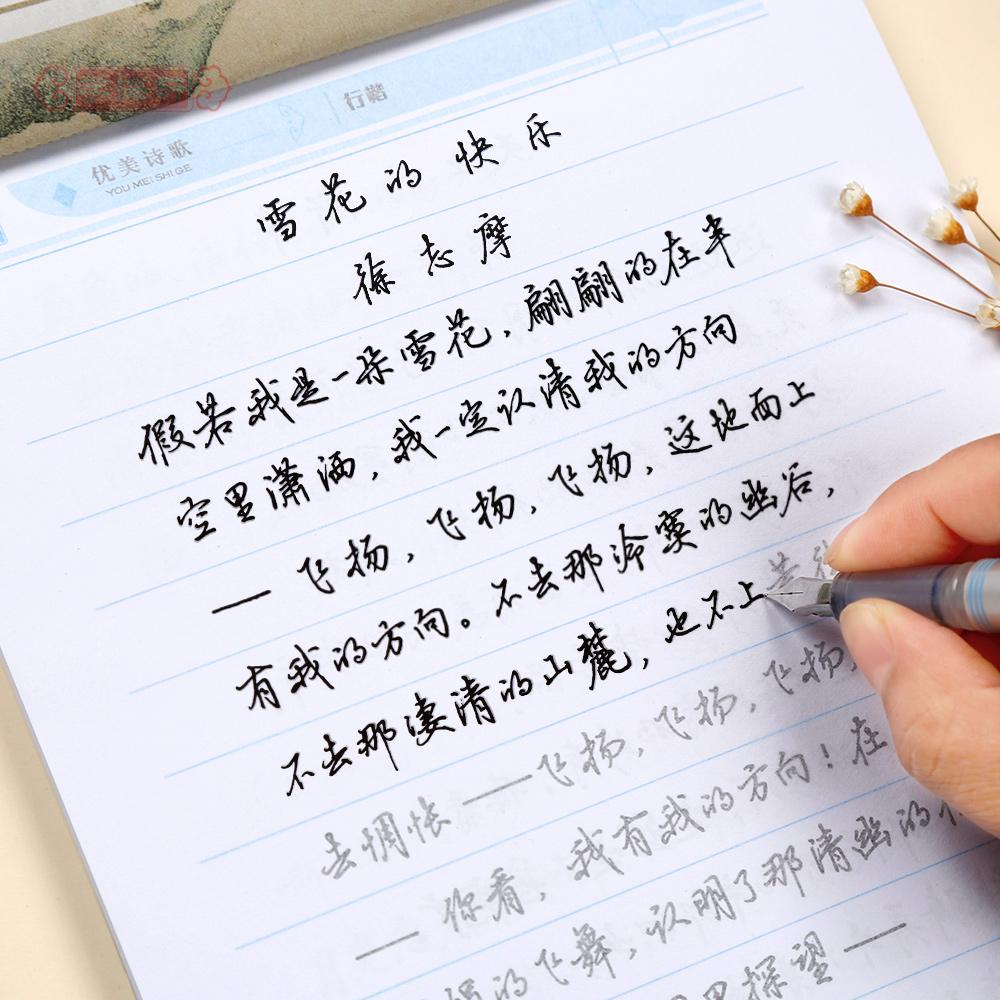 优美诗歌
YOU MEI SHI GE
行楷
雪花的快乐
徐志摩
假若我是一朵雪花，翩翩的在半
空里潇洒，我一定认清我的方向
——飞扬，飞扬，飞扬，这地面上
有我的方向。不去那冷寞的幽谷，
不去那凄清的山麓，也不上荒
去惆怅——飞扬，飞扬，飞扬，
——你看，我有我的方向！在
的飞舞，认明了那清幽的
里探望——